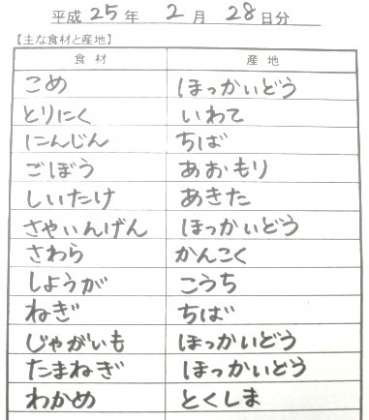 平成 25 年 2 月 28 日分
【主な食材と産地】
食材 産地
こめ ほっかいどう
とりにく いわて
にんじん ちば
ごぼう あおもり
しいたけ あきた
さやいんげん ほっかいどう
さわら かんこく
しょうが こうち
ねぎ ちば
じゃがいも ほっかいどう
たまねぎ ほっかいどう
わかめ とくしま